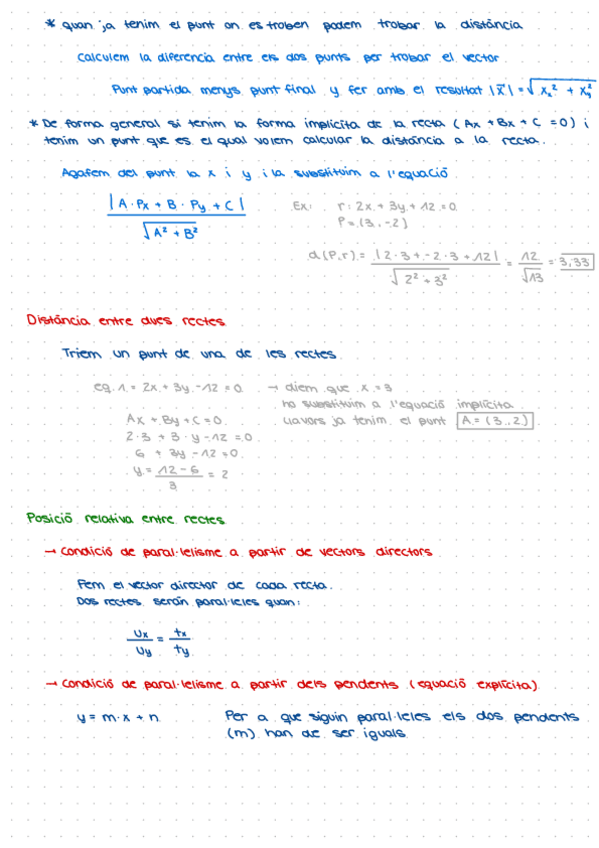 * quan ja tenim el punt on es troben podem trobar la distància
calculem la diferència entre els dos punts per trobar el vector
Punt partida menys punt final y fer amb el resultat |x⃗| = √(xₓ² + xᵧ²)
* De forma general si tenim la forma implícita de la recta (Ax + Bx + C = 0) i
tenim un punt que es el qual volem calcular la distància a la recta.
Agafem del punt la x i y i la substituim a l'equació
|A · Px + B · Py + C| / √(A² + B²)
Ex: r: 2x + 3y + 12 = 0
P = (3, -2)
d(P,r) = |2·3 + -2·3 + 12| / √(2² + 3²) = 12/√13 = 3,33
Distància entre dues rectes
Triem un punt de una de les rectes
eq. 1 = 2x + 3y - 12 = 0 → diem que x = 3
ho substituim a l'equació implícita
Ax + By + C = 0 llavors ja tenim el punt A = (3, 2)
2·3 + 3·y - 12 = 0
6 + 3y - 12 = 0
y = (12 - 6)/3 = 2
Posició relativa entre rectes
→ condició de paral·lelisme a partir de vectors directors
Fem el vector director de cada recta.
Dos rectes seran paral·leles quan:
Ux/Uy = tx/ty
→ condició de paral·lelisme a partir dels pendents (equació explícita)
y = m·x + n Per a que siguin paral·leles els dos pendents
(m) han de ser iguals